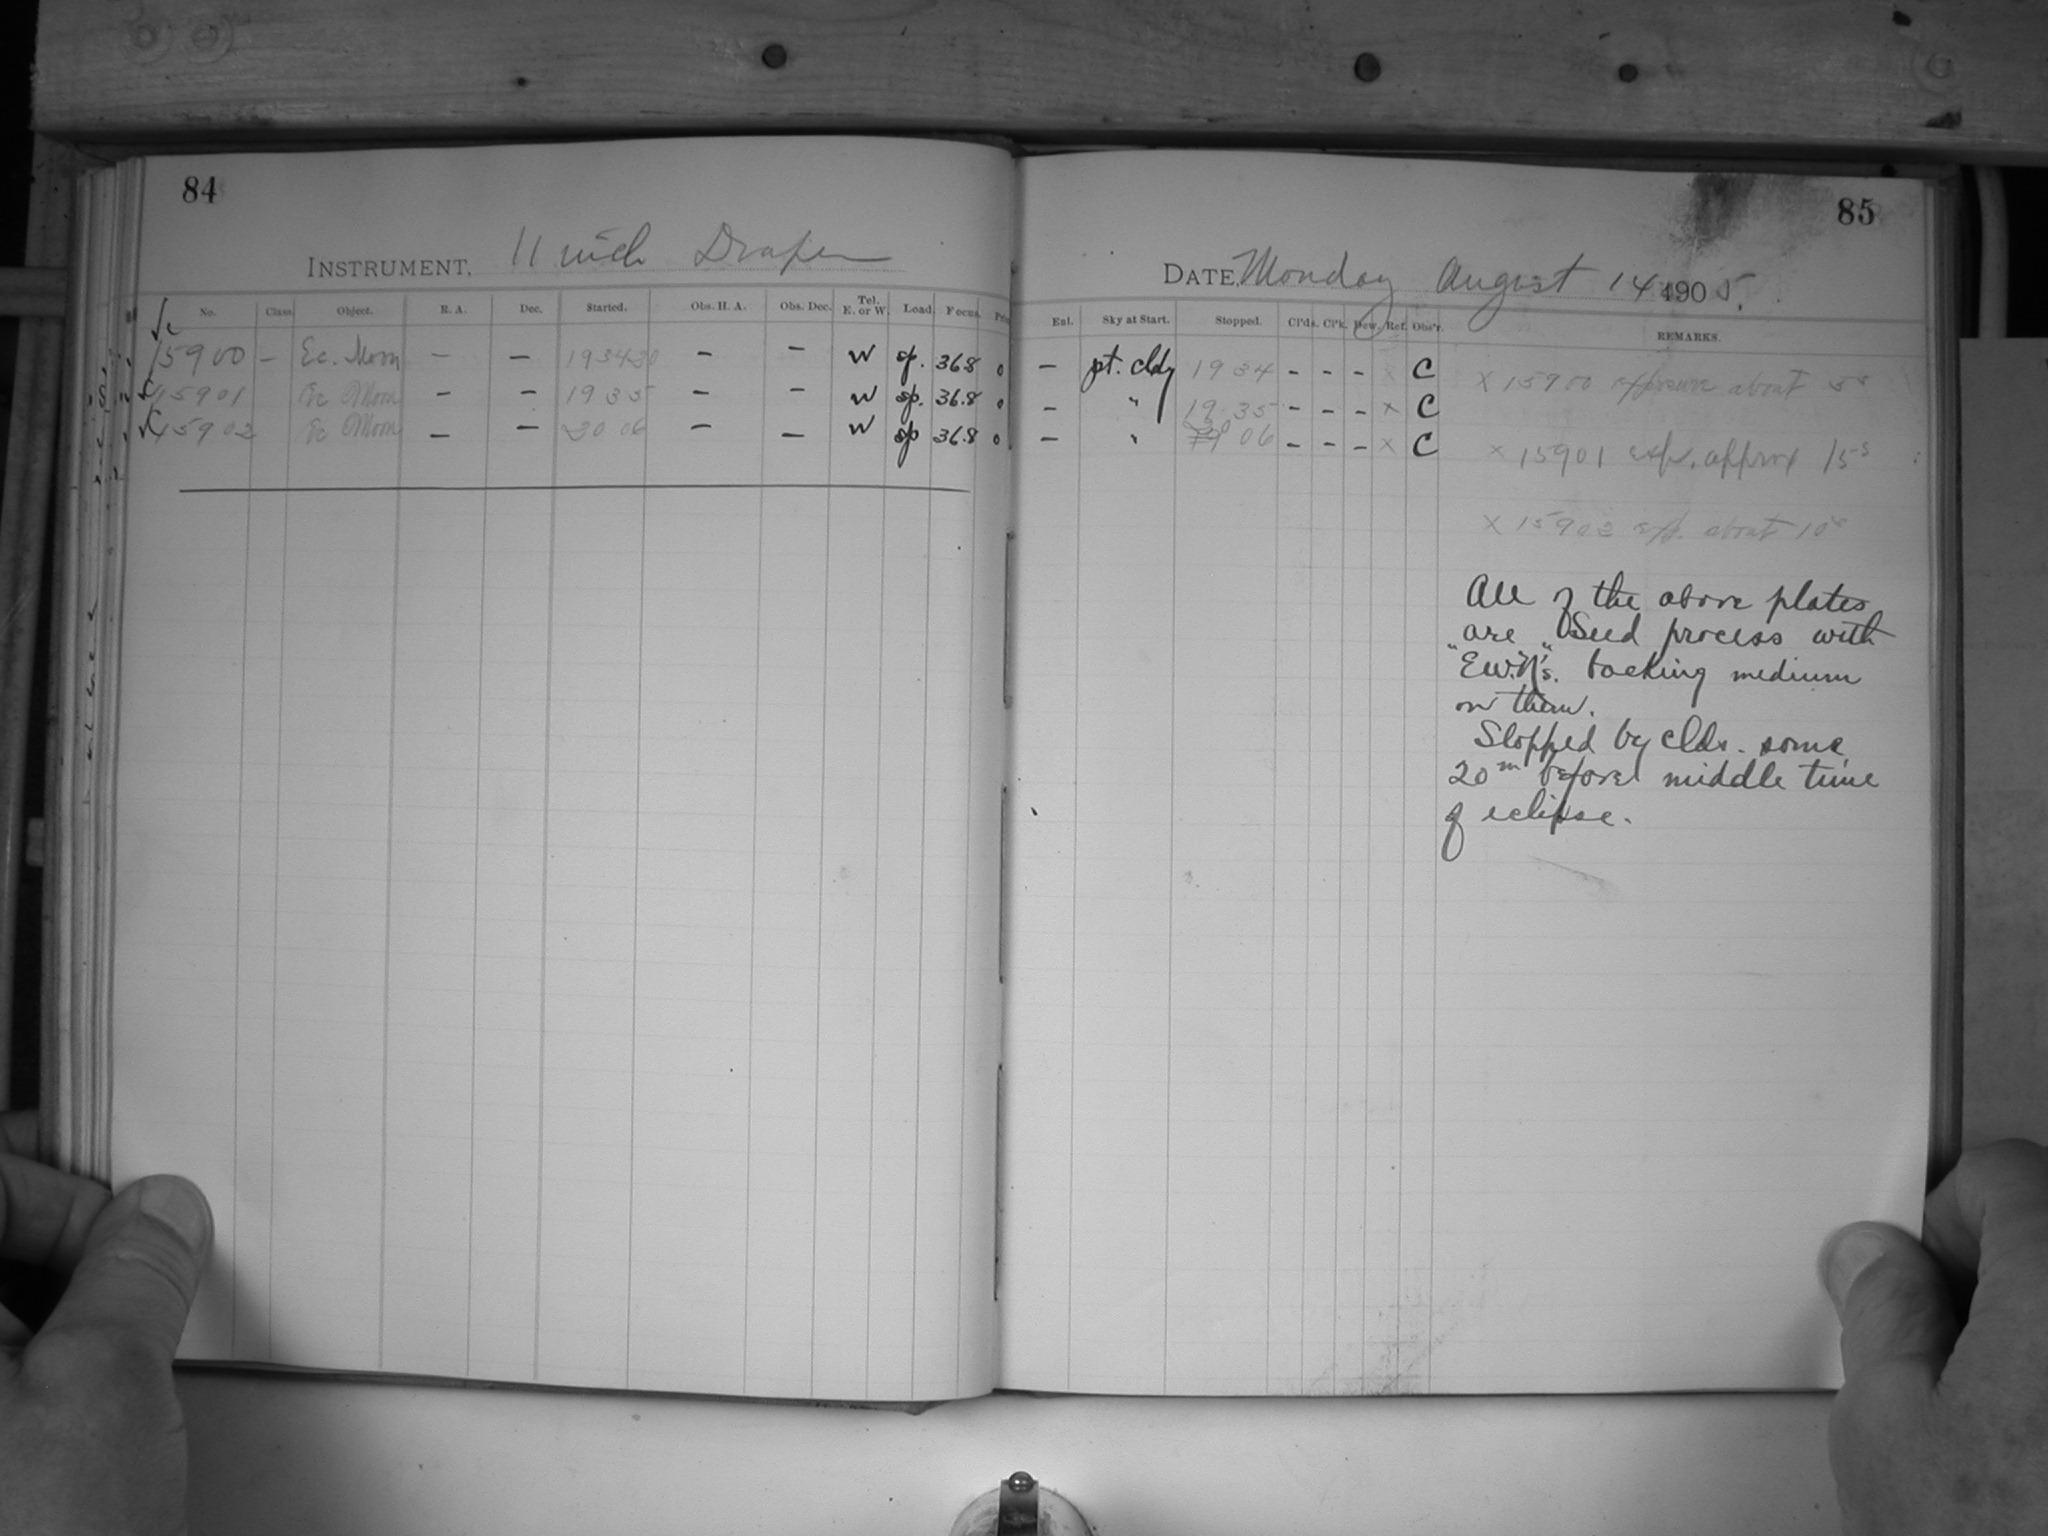 84
INSTRUMENT, 11 inch Draper
No. Class. Object. R. A. Dec. Started. Obs. H. A. Obs. Dec. Tel. E. or W. Load. Focus.
15900 – Ec. Moon – – 19 34 30 – – W sp. 36.8 0
15901 Ec Moon – – 19 35 – – W sp. 36.8 0
15902 Ec Moon – – 20 06 – – W sp 36.8 0
85
DATE, Monday August 14 1905.
Enl. Sky at Start. Stopped. Cl'ds. Cl'k. Dew. Ref. Obs'r. REMARKS.
– pt. cldy 19 34 – – – x C x 15900 exposure about 5s
– " 19 35 – – – x C
– " 20 06 – – – x C x 15901 exp. approx 15s
x 15902 exp. about 10s
All of the above plates
are "Seed process with
"E.W.K's". backing medium
on them.
Stopped by clds. some
20m before middle time
of eclipse.